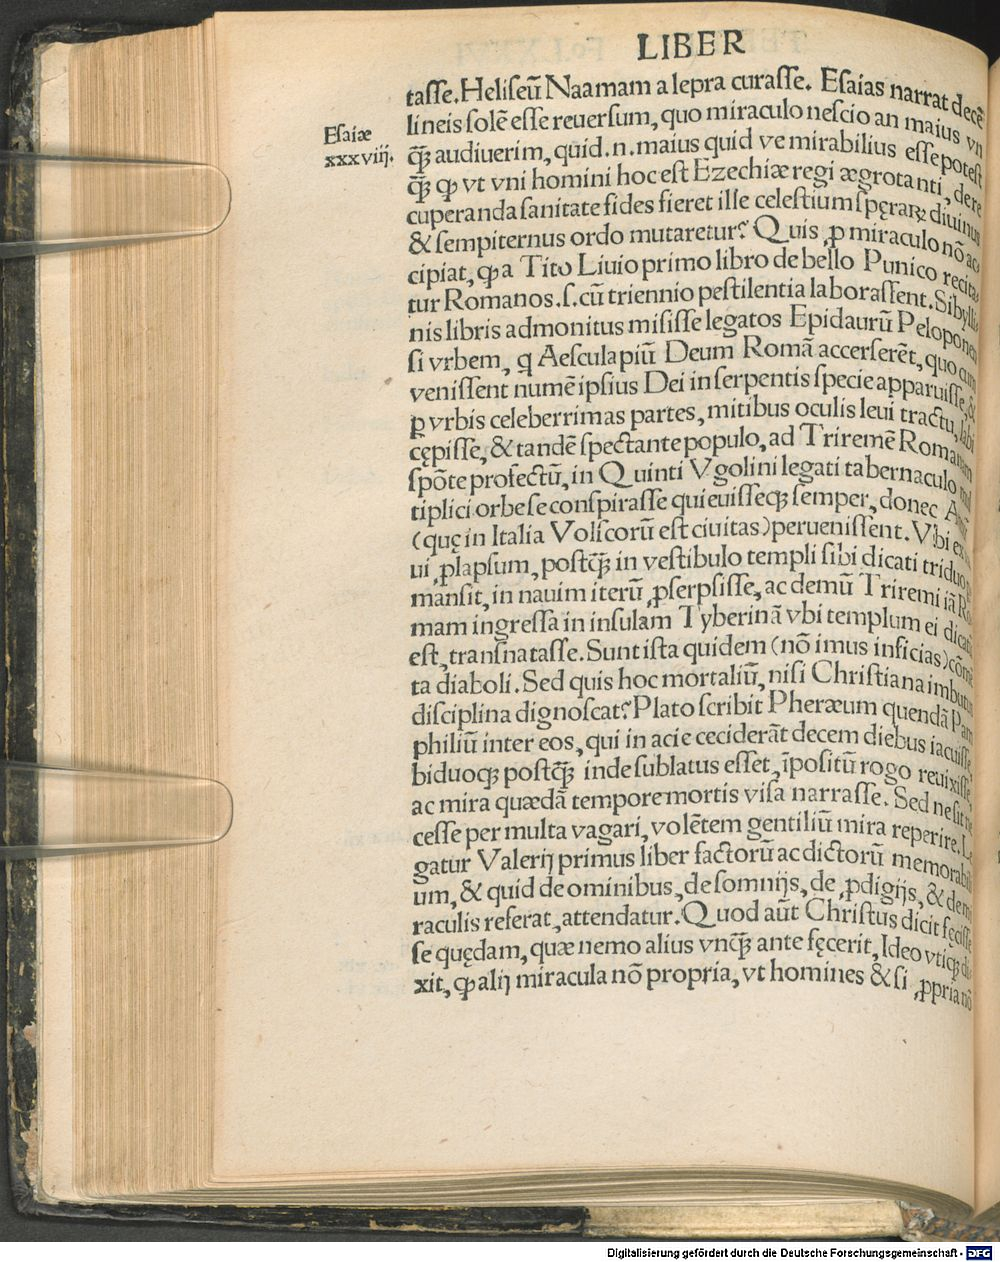 LIBER
Esaiæ
xxxviij.
tasse. Heliseū Naamam a lepra curasse. Esaias narrat decē
lineis solē esse reuersum, quo miraculo nescio an maius vn
q̄ȝ audiuerim, quid .n. maius quid ve mirabilius esse potest
q̄ȝ ꝙ vt vni homini hoc est Ezechiæ regi ægrotanti, de re
cuperanda sanitate fides fieret ille celestium spęrarꝝ diuinus
& sempiternus ordo mutaretur? Quis ꝓ miraculo nō ac
cipiat, ꝙ a Tito Liuio primo libro de bello Punico recita
tur Romanos .s. cū triennio pestilentia laborassent. Sibylli
nis libris admonitus misisse legatos Epidaurū Peloponen
si vrbem, q Aesculapiū Deum Romā accerserēt, quo cum
venissent numē ipsius Dei in serpentis specie apparuisse, &
ꝑ vrbis celeberrimas partes, mitibus oculis leui tractu, labi
cępisse, & tandē spectante populo, ad Triremē Romanam
spōte profectū, in Quinti Vgolini legati tabernaculo mul
tiplici orbe se conspirasse quieuisseqȝ semper, donec
(quę in Italia Volscorū est ciuitas) peruenissent. Vbi ex
ui ꝓlapsum, postq̄ȝ in vestibulo templi sibi dicati triduo
mansit, in nauim iterū ꝓserpsisse, ac demū Triremi iā Ro
mam ingressa in insulam Tyberinā vbi templum ei dicatū
est, transnatasse. Sunt ista quidem (nō imus inficias) cōmē
ta diaboli. Sed quis hoc mortaliū, nisi Christiana imbutus
disciplina dignoscat? Plato scribit Pheræum quendā Pam
philiū inter eos, qui in acie ceciderāt decem diebus iacuisse,
biduoqȝ postq̄ȝ inde sublatus esset, īpositū rogo reuixisse,
ac mira quædā tempore mortis visa narrasse. Sed ne sit ne
cesse per multa vagari, volētem gentiliū mira reperire. Le
gatur Valerij primus liber factorū ac dictorū memorabili
um, & quid de ominibus, de somnijs, de ꝓdigijs, & de mi
raculis referat, attendatur. Quod aūt Christus dicit fęcisse
se quędam, quæ nemo alius vnq̄ȝ ante fęcerit, Ideo vtiqȝ di
xit, ꝙ alij miracula nō propria, vt homines & si ꝓpria nō
Digitalisierung gefördert durch die Deutsche Forschungsgemeinschaft - DFG